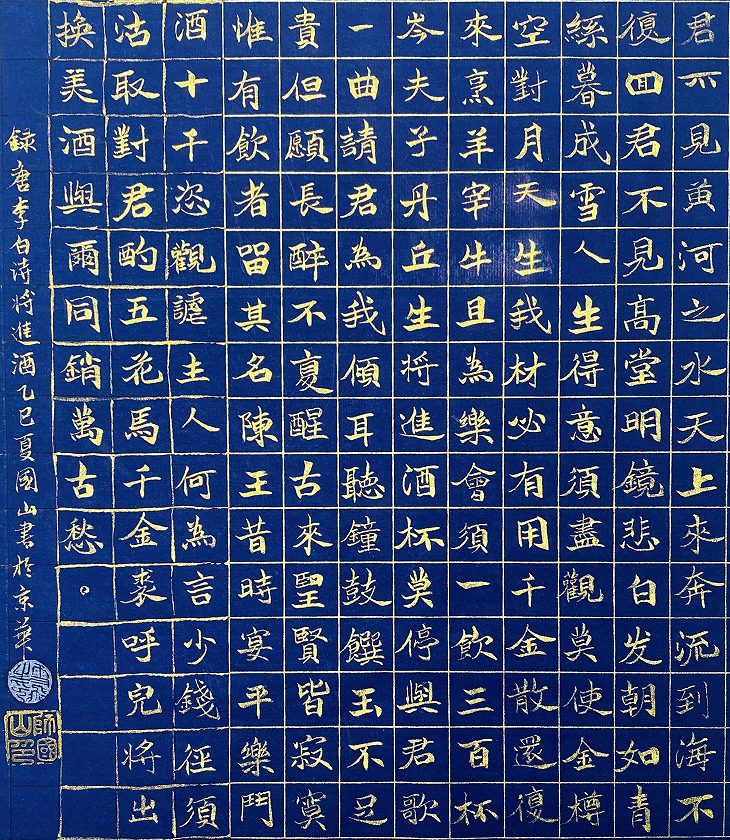 君不見黄河之水天上來奔流到海不
復回君不見高堂明鏡悲白发朝如青
絲暮成雪人生得意須盡觀莫使金樽
空對月天生我材必有用千金散還復
來烹羊宰牛且為樂會須一飲三百杯
岑夫子丹丘生將進酒杯莫停與君歌
一曲請君為我傾耳聽鐘鼓饌玉不足
貴但願長醉不复醒古來聖賢皆寂寞
惟有飲者留其名陳王昔時宴平樂鬥
酒十千恣觀謔主人何為言少錢徑須
沽取對君酌五花馬千金裘呼兒將出
換美酒與爾同銷萬古愁。
録唐李白詩將進酒乙巳夏國山書於京華
師國山印